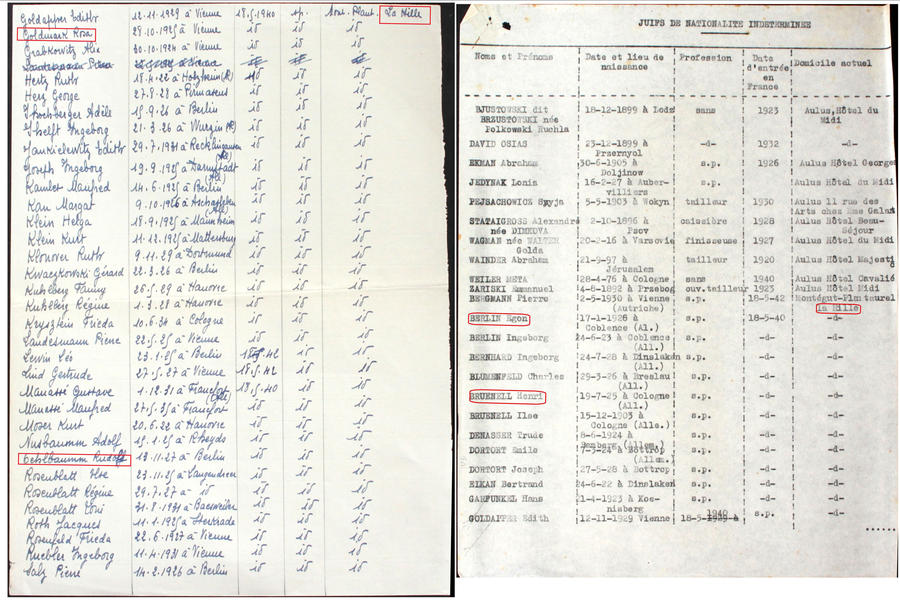 Goldapper Edith 12.11.1929 à Vienne 18.5.1940 s.p. Mont. Plant. La Hille
Goldmark Rosa 28.10.1925 à Vienne id id id
Grabkowitz Ilse 30.10.1924 à Vienne id id id
Hertz Ruth 18.4.22 à id id id
Herz George 27.8.23 à Pirmasens id id id
Adèle 15.9.26 à Berlin id id id
Ingeborg 21.3.26 à Wurzin id id id
Jankielewitz Edith 29.7.1931 à Recklingausen id id id
Joseph Ingeborg 19.9.1925 à Darmstadt id id id
(Al)
Kamlet Manfred 14.6.1925 à Berlin id id id
Kan Margot 9.10.1926 à id id id
(All)
Klein Helga 18.9.1925 à Mannheim id id id
Klein Kurt 11.12.1925 à Mattersburg id id id
Klonover Ruth 9.11.29 à Dortmund id id id
Kwaczkowski Gérard 22.3.26 à Berlin id id id
Kuhlberg Fanny 26.5.29 à Hanovre id id id
Kuhlberg Régine 1.3.28 à Hanovre id id id
Krysztein Frieda 10.6.34 à Cologne id id id
Landesmann Pierre 22.5.25 à Vienne id id id
Lewin Léo 23.1.25 à Berlin id id
Lind Gertrude 27.5.27 à Vienne 18.5.42 id id
Manasse Gustave 1.12.31 à Francfort 18.5.40 id id
Manasse Manfred 27.5.35 à Francfort id id id
Moser Kurt 20.6.22 à Hanovre id id id
Nusbaumm Adolf 19.1.25 à Rheyds id id id
Oehlbaumm Rudolf 13.11.27 à Berlin id id id
Rosenblatt Else 23.11.25 à id id id
Rosenblatt Régine 29.7.27 à id id id id
Rosenblatt Toni 31.8.1931 à Baesweiler id id id
Roth Jacques 11.1.1925 à Sterkrade id id id
Rosenfeld Frieda 22.6.1927 à Vienne id id id
Ruebler Ingeborg 11.4.1931 à Vienne id id id
Salz Pierre 14.2.1926 à Berlin id id id
JUIFS DE NATIONALITE INDETERMINEE
Noms et Prénoms Date et lieu de naissance Profession Date d'entrée en France Domicile actuel
BJUSTOWSKI dit 18-12-1899 à Lodz sans 1923 Aulus,Hôtel du
BRZUSTOWSKI née Midi
Polkowski Ruchla
DAVID OSIAS 23-12-1899 à -d- 1932 -d-
Przemyol
EKMAN Abraham 30-6-1905 à s.p. 1926 Aulus Hôtel Georges
Doljinow
JEDYNAK Lonia 16-2-27 à Auber- s.p. Aulus Hôtel du Midi
villiers
PEJSACHOWICZ Szyja 5-5-1903 à Wokyn tailleur 1930 Aulus 11 rue des
Arts chez Mme Galan
STATAIGROSS Alexandre 2-10-1896 à caissière 1928 Aulus Hôtel Beau-
née DIMKUVA Psov Séjour
WAGMAN née WALTER 20-2-16 à Varsovie finisseuse 1927 Aulus Hôtel du Midi
Golda
WAINDER Abraham 21-9-97 à tailleur 1920 Aulus Hôtel Majesti
Jérusalem
WEILER META 28-4-76 à Cologne sans 1940 Aulus Hôtel Cavalié
ZARISKI Emmanuel 4-8-1892 à Przebog ouv.tailleur 1923 Aulus Hôtel Midi
BERGMANN Pierre 2-5-1930 à Vienne s.p. 18-5-42 Montégut-Plantaurel
(Autriche) la Hille
BERLIN Egon 17-1-1928 à s.p. 18-5-40 -d-
Coblence (Al.)
BERLIN Ingeborg 24-6-23 à Coblence s.p. -d- -d-
(All.)
BERNHARD Ingeborg 24-7-28 à Dinslaken s.p. -d- -d-
(All.)
BLUMENFELD Charles 29-3-26 à Breslau s.p. -d- -d-
(All.)
BRUENELL Henri 19-7-25 à Cologne s.p. -d- -d-
(All.)
BRUENELL Ilse 15-12-1903 à s.p. -d- -d-
Cologne (Alle.)
DENASSER Trude 8-6-1924 à s.p. -d- -d-
DORTORT Emile 7-5-24 à Bottrop s.p. -d- -d-
(Allem.)
DORTORT Joseph 27-5-28 à Bottrop s.p. -d- -d-
EIKAN Bertrand 24-6-22 à Dinslaken s.p. -d- -d-
GARFUNKEL Hans 21-4-1923 à Koe- s.p. -d- -d-
nisberg
GOLDAPPER Edith 12-11-1929 Vienne 18-5-1940 s.p. -d-
......